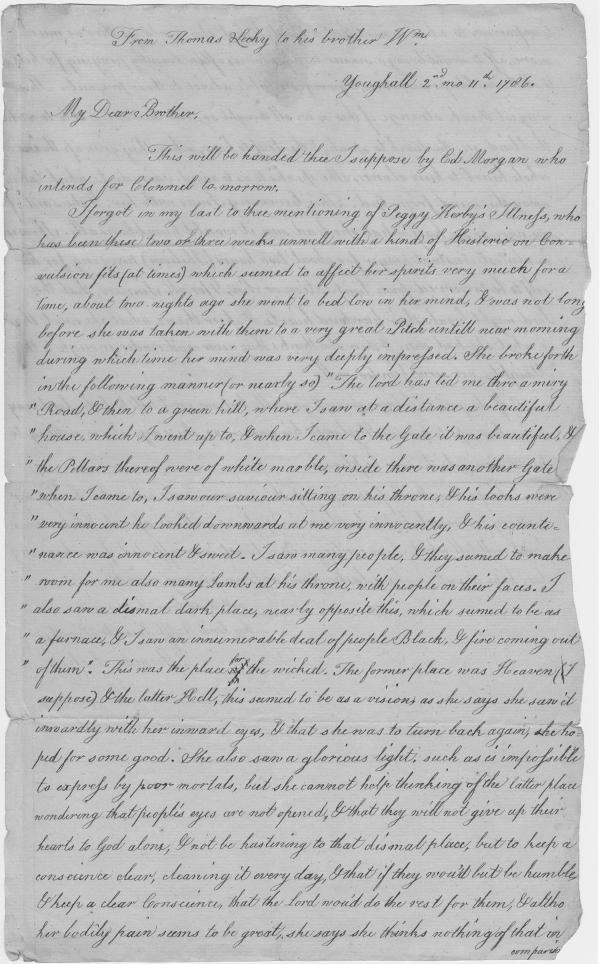 From Thomas Lecky to his brother Wm.
Youghall 2nd mo 11th. 1786.
My Dear Brother,
This will be handed thee I suppose by Ed Morgan who
intends for Clonmel to morrow.
I forgot in my last to thee mentioning of Peggy Herby's Illness, who
has been these two or three weeks unwell with a kind of Histeric on Con-
vulsion fits (at times) which seemed to affect her spirits very much for a
time, about two nights ago she went to bed low in her mind, & was not long
before she was taken with them to a very great Pitch untill near morning
during which time her mind was very deeply impressed. She broke forth
in the following manner (or nearly so) "The lord has led me thro a miry
" Road, & then to a green hill, where I saw at a distance a beautiful
" house, which I went up to, & when I came to the Gate it was beautiful, &
" the Pillars thereof were of white marble, inside there was another Gate
" when I came to, I saw our saviour sitting on his throne, & his looks were
" very innocent he looked downwards at me very innocently, & his counte-
" nance was innocent & sweet. I saw many people, & they seemed to make
" room for me also many Lambs at his throne, with people on their faces. I
" also saw a dismal dark place, nearly opposite this, which seemed to be as
" a furnace, & I saw an innumerable deal of people Black, & fire coming out
" of them". This was the place for the wicked. The former place was Heaven (I
suppose) & the latter Hell, this seemed to be as a vision, as she says she saw it
inwardly with her inward eyes, & that she was to turn back again, she ho-
ped for some good. She also saw a glorious light, such as is impossible
to express by poor mortals, but she cannot help thinking of the latter place
wondering that people's eyes are not opened, & that they will not give up their
hearts to God alone, & not be hastining to that dismal place, but to keep a
conscience clear, cleaning it every day, & that if they wou'd but be humble
& keep a clear Conscience, that the Lord wou'd do the rest for them, & altho
her bodily pain seems to be great, she says she thinks nothing of that in
comparis